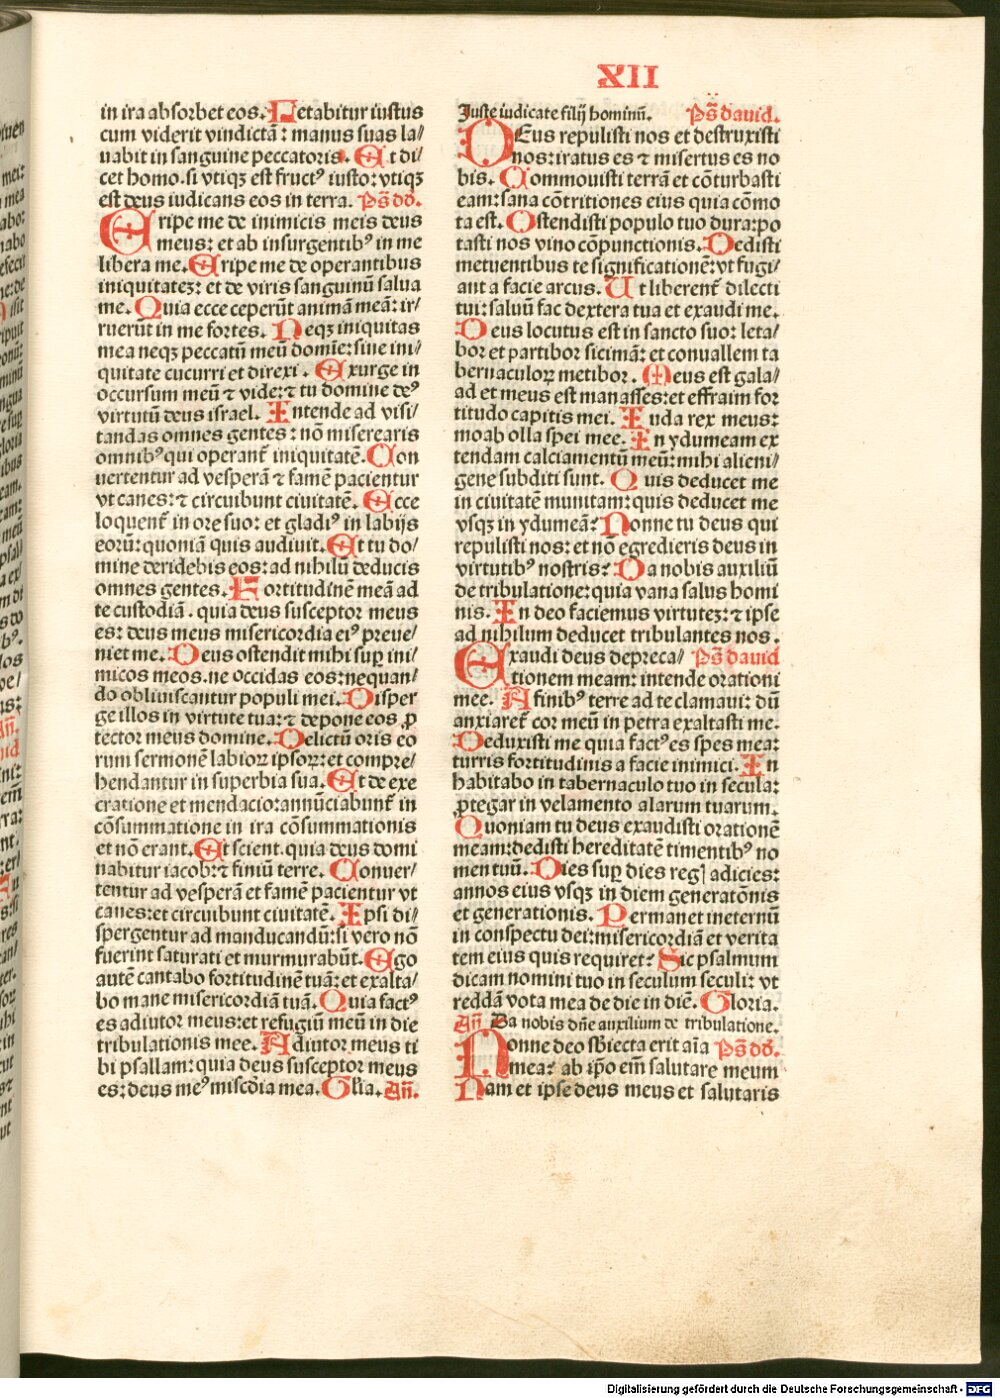 XII
in ira absorbet eos. Letabitur iustus
cum viderit vindictā: manus suas la/
uabit in sanguine peccatoris. Et di/
cet homo. si vtiqꝫ est fructꝰ iusto: vtiqꝫ
est deus iudicans eos in terra. Pš dd.
Eripe me de inimicis meis deus
meus: et ab insurgentibꝰ in me
libera me. Eripe me de operantibus
iniquitatez: et de viris sanguinū salua
me. Quia ecce ceperūt animā meā: ir/
ruerūt in me fortes. Neqꝫ iniquitas
mea neqꝫ peccatū meū domīe: sine ini/
quitate cucurri et direxi. Exurge in
occursum meū ⁊ vide: ⁊ tu domine deꝰ
virtutū deus israel. Intende ad visi/
tandas omnes gentes: nō miserearis
omnibꝰ qui operant̄ iniquitatē. Con
uertentur ad vesperā ⁊ famē pacientur
vt canes: ⁊ circuibunt ciuitatē. Ecce
loquent̄ in ore suo: et gladiꝰ in labijs
eorū: quoniā quis audiuit. Et tu do/
mine deridebis eos: ad nihilū deducis
omnes gentes. Fortitudinē meā ad
te custodiā. quia deus susceptor meus
es: deus meus misericordia eiꝰ preue/
niet me. Deus ostendit mihi suꝑ ini/
micos meos. ne occidas eos: nequan/
do obliuiscantur populi mei. Disper
ge illos in virtute tua: ⁊ depone eos ꝓ
tector meus domine. Delictū oris eo
rum sermonē labioꝝ ipsoꝝ: et compre/
hendantur in superbia sua. Et de exe
cratione et mendacio: annūciabunt̄ in
cōsummatione in ira cōsummationis
et nō erant. Et scient. quia deus domi
nabitur iacob: ⁊ finiū terre. Conuer/
tentur ad vesperā et famē pacientur vt
canes: et circuibunt ciuitatē. Ipsi di/
spergentur ad manducandū: si vero nō
fuerint saturati et murmurabūt. Ego
autē cantabo fortitudinē tuā: et exalta/
bo mane misericordiā tuā. Quia factꝰ
es adiutor meus: et refugiū meū in die
tribulationis mee. Adiutor meus ti
bi psallam: quia deus susceptor meus
es: deus meꝰ miscdia mea. Glia. Añ.
Juste iudicate filij hominū. Pš dauid.
DEus repulisti nos et destruxisti
nos: iratus es ⁊ misertus es no
bis. Commouisti terrā et cōturbasti
eam: sana cōtritiones eius quia cōmo
ta est. Ostendisti populo tuo dura: po
tasti nos vino cōpunctionis. Dedisti
metuentibus te significationē: vt fugi/
ant a facie arcus. Ut liberent̄ dilecti
tui: saluū fac dextera tua et exaudi me.
Deus locutus est in sancto suo: leta/
bor et partibor sicimā: et conuallem ta
bernaculoꝝ metibor. Meus est gala/
ad et meus est manasses: et effraim for
titudo capitis mei. Iuda rex meus:
moab olla spei mee. In ydumeam ex
tendam calciamentū meū: mihi alieni/
gene subditi sunt. Quis deducet me
in ciuitatē munitam: quis deducet me
vsqꝫ in ydumeā? Nonne tu deus qui
repulisti nos: et nō egredieris deus in
virtutibꝰ nostris? Da nobis auxiliū
de tribulatione: quia vana salus homi
nis. In deo faciemus virtutez: ⁊ ipse
ad nihilum deducet tribulantes nos.
Exaudi deus depreca/ Pš dauid
tionem meam: intende orationi
mee. A finibꝰ terre ad te clamaui: dū
anxiaret̄ cor meū in petra exaltasti me.
Deduxisti me quia factꝰ es spes mea:
turris fortitudinis a facie inimici. In
habitabo in tabernaculo tuo in secula:
ꝓtegar in velamento alarum tuarum.
Quoniam tu deus exaudisti orationē
meam: dedisti hereditatē timentibꝰ no
men tuū. Dies suꝑ dies regꝭ adicies:
annos eius vsqꝫ in diem generatōnis
et generationis. Permanet in eternū
in conspectu dei: misericordiā et verita
tem eius quis requiret? Sic psalmum
dicam nomini tuo in seculum seculi: vt
reddā vota mea de die in diē. Gloria.
Añ Da nobis dn̄e auxilium de tribulatione.
Nonne deo sb̄iecta erit aīa Pš dd.
mea? ab ip̄o em̄ salutare meum
Nam et ipse deus meus et salutaris
Digitalisierung gefördert durch die Deutsche Forschungsgemeinschaft - DFG